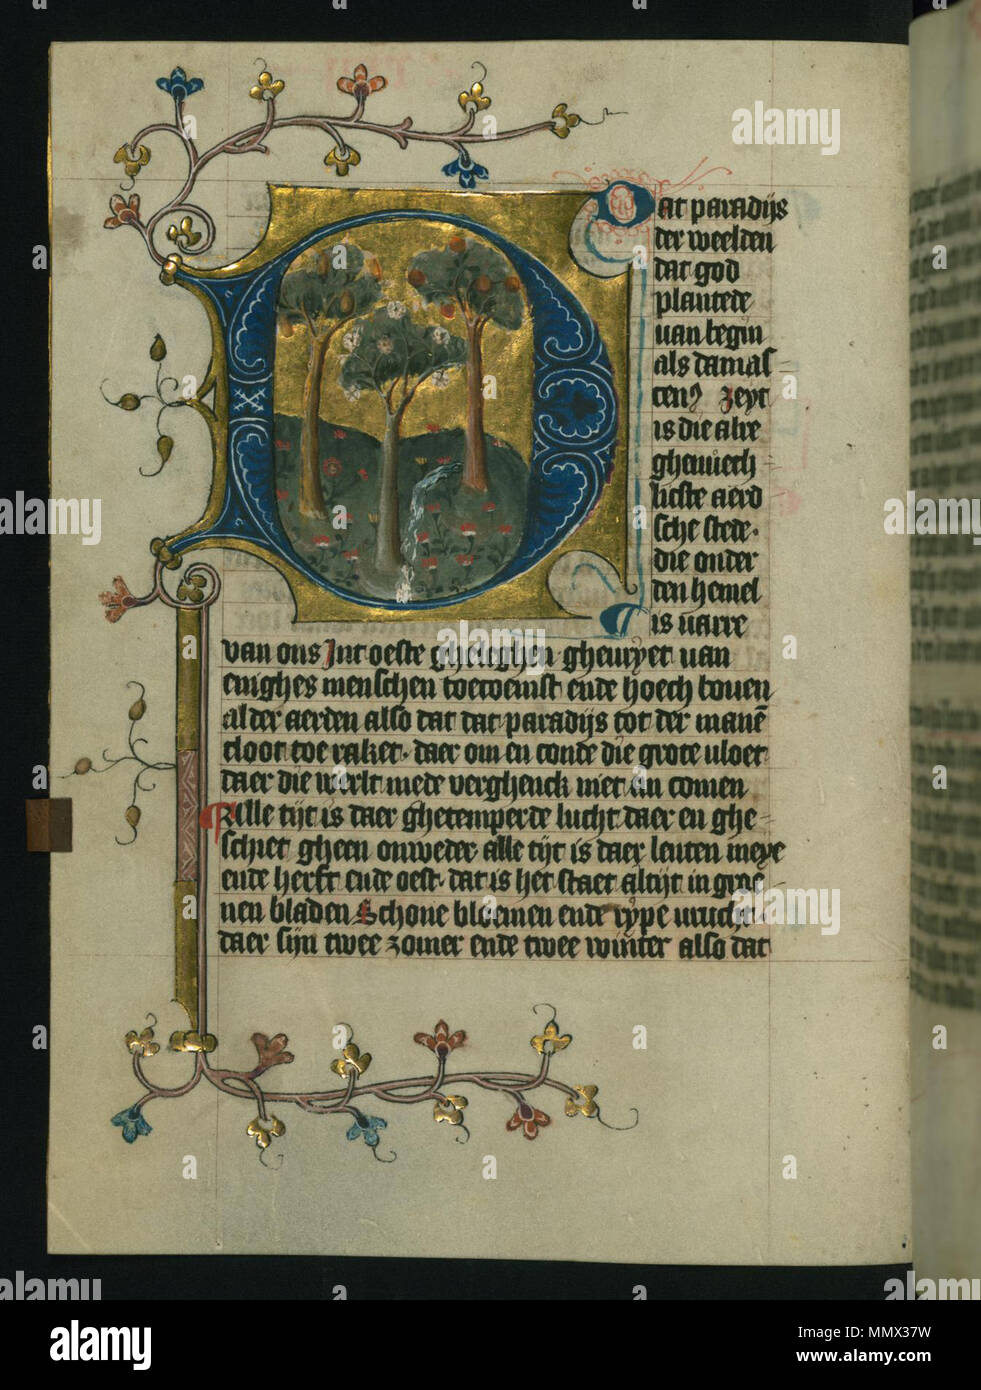 Dat paradijs
der weelden
dat god
plantede
uan begin
als damas
cen⁹ zeyt
is die alre
ghenuech
licste aerd
sche stede·
die onder
den hemel
is uarre
van ons Int oeste gheleghen gheuryet uan
enighes menschen toecoemst ende hoech bouen
al der aerden also dat dat paradijs tot der manē
cloot toe raket· daer om en conde die grote uloet
daer die werlt mede verghenck niet an comen
Alle tijt is daer ghetemperde lucht daer en ghe
schiet gheen onweder alle tijt is daer lenten meye
ende herfst ende oest· dat is het staet altijt in groe
nen bladen Schone bloemen ende rype urucht·
daer sijn twee zomer ende twee winter also dat
alamy
alamy stock photo
MMX37W
www.alamy.com